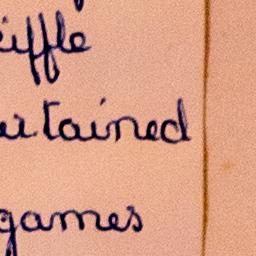 eiffle
ertained
games